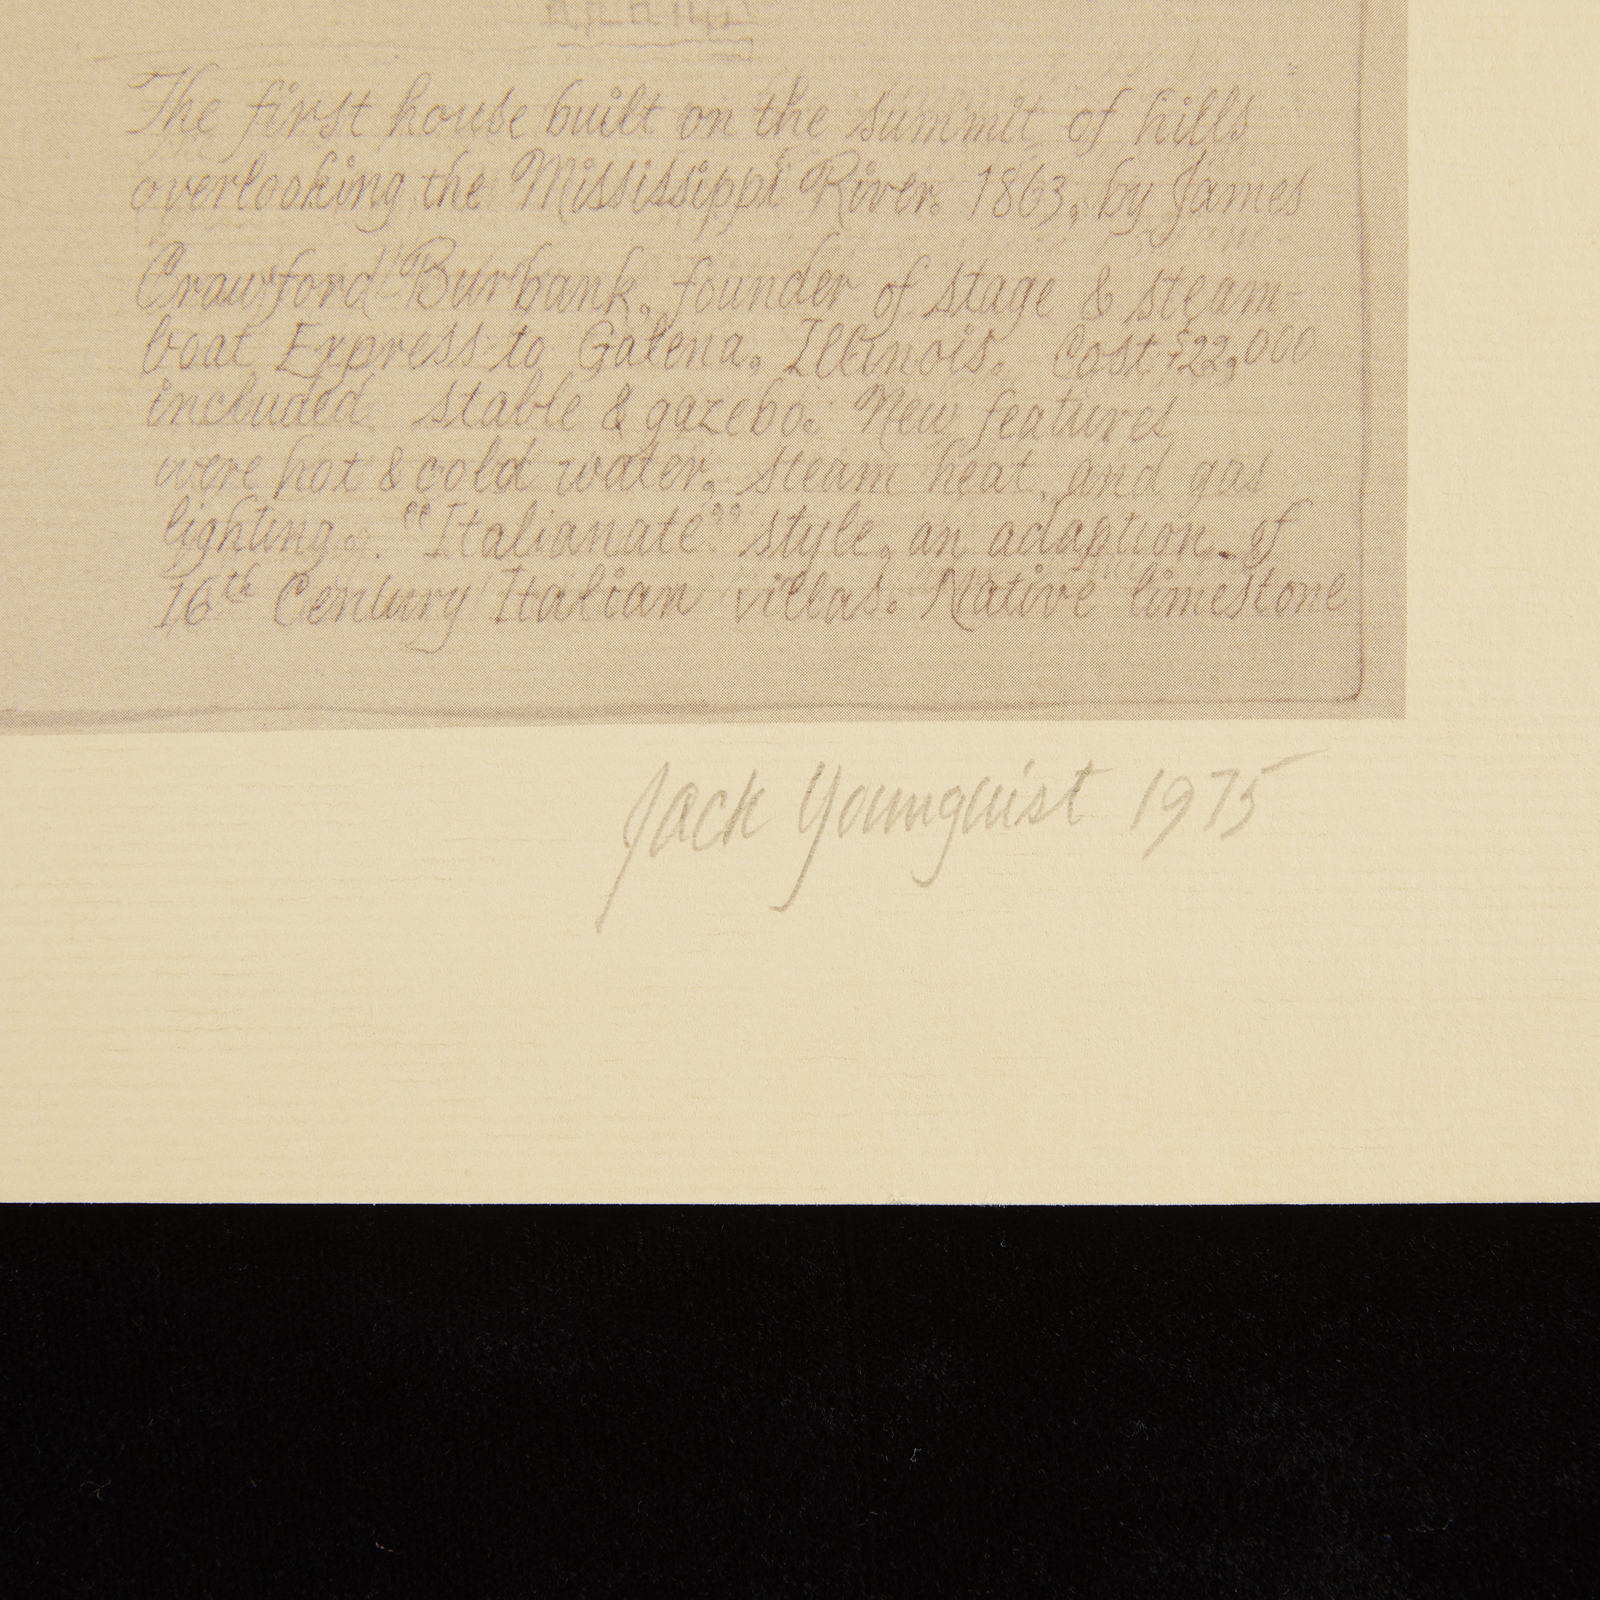 The first house built on the summit of hills
overlooking the Mississippi River. 1863, by James
Crawford Burbank, founder of stage & steam-
boat Express to Galena, Illinois. Cost $22,000
included stable & gazebo. New features
were hot & cold water, steam heat, and gas
lighting. "Italianate" style, an adaption of
16th Century Italian villas. Native limestone
Jack Youngquist 1975